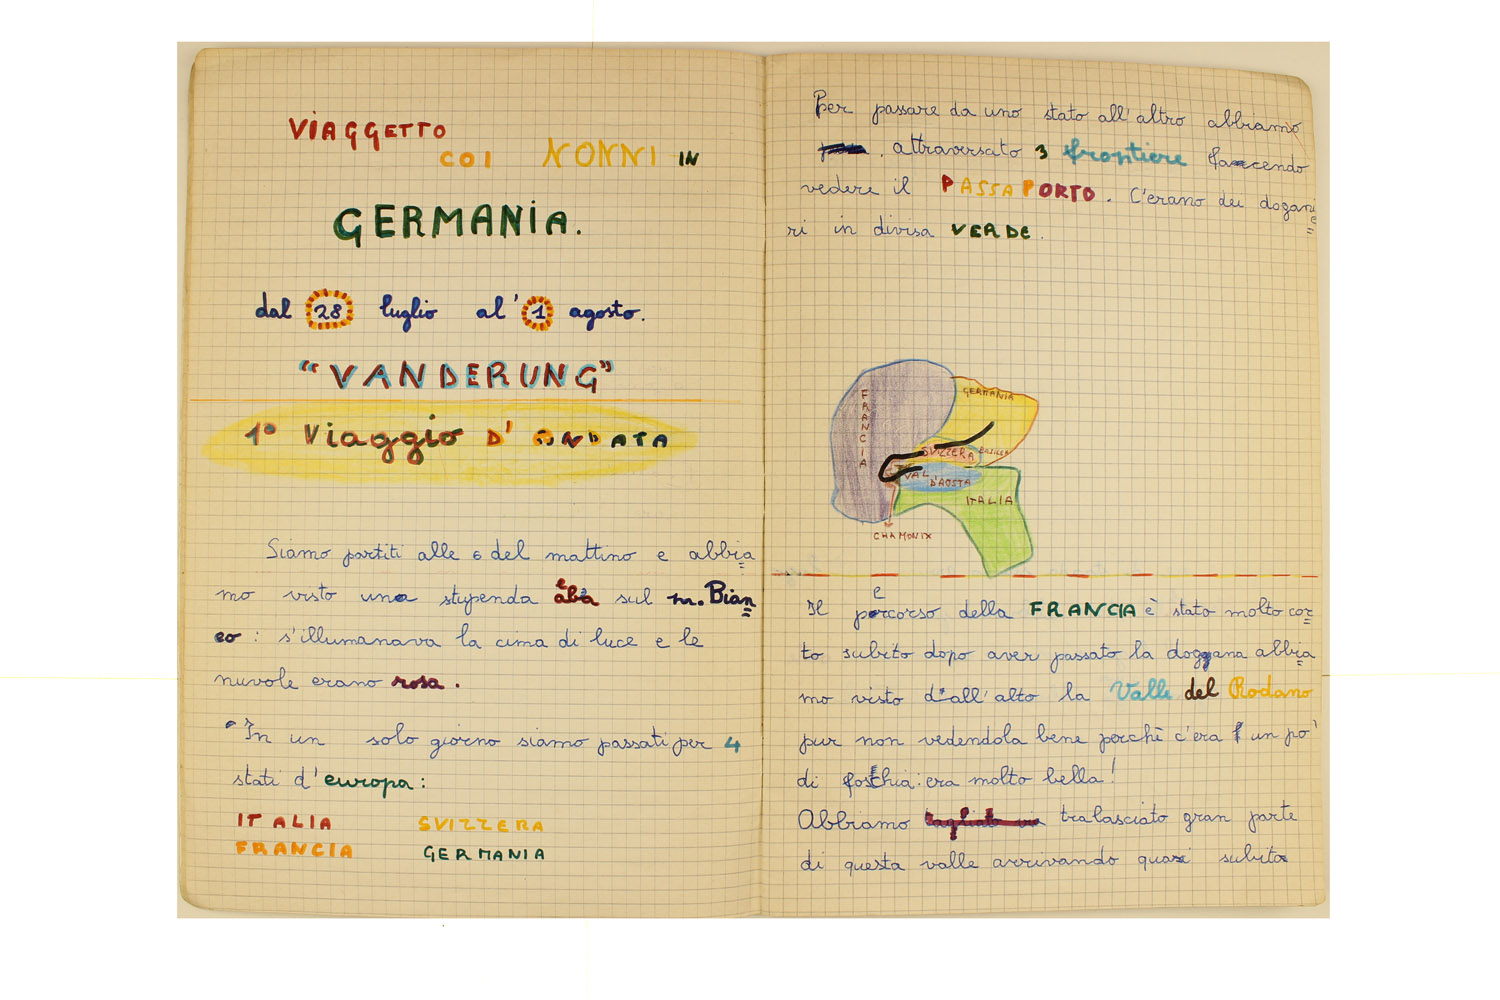 VIAGGETTO
COI NONNI IN
GERMANIA.
dal 28 luglio al' 1 agosto.
"VANDERUNG"
1° Viaggio D' ANDATA
Siamo partiti alle 6 del mattino e abbia
mo visto una stupenda alba sul m. Bian
co : s'illumanava la cima di luce e le
nuvole erano rosa .
In un solo giorno siamo passati per 4
stati d'europa :
ITALIA SVIZZERA
FRANCIA GERMANIA
Per passare da uno stato all'altro abbiamo
attraversato 3 frontiere facendo
vedere il PASSAPORTO . C'erano dei dogani
e
ri in divisa VERDE .
GERMANIA
FRANCIA
SVIZZERA BASILEA
VAL
D'AOSTA
ITALIA
CHAMONIX
e
Il percorso della FRANCIA è stato molto cor
to subito dopo aver passato la doggana abbia
mo visto dall'alto la Valle del Rodano
pur non vedendola bene perchè c'era un po'
di foschia : era molto bella!
Abbiamo tagliato via tralasciato gran parte
di questa valle arrivando quasi subito